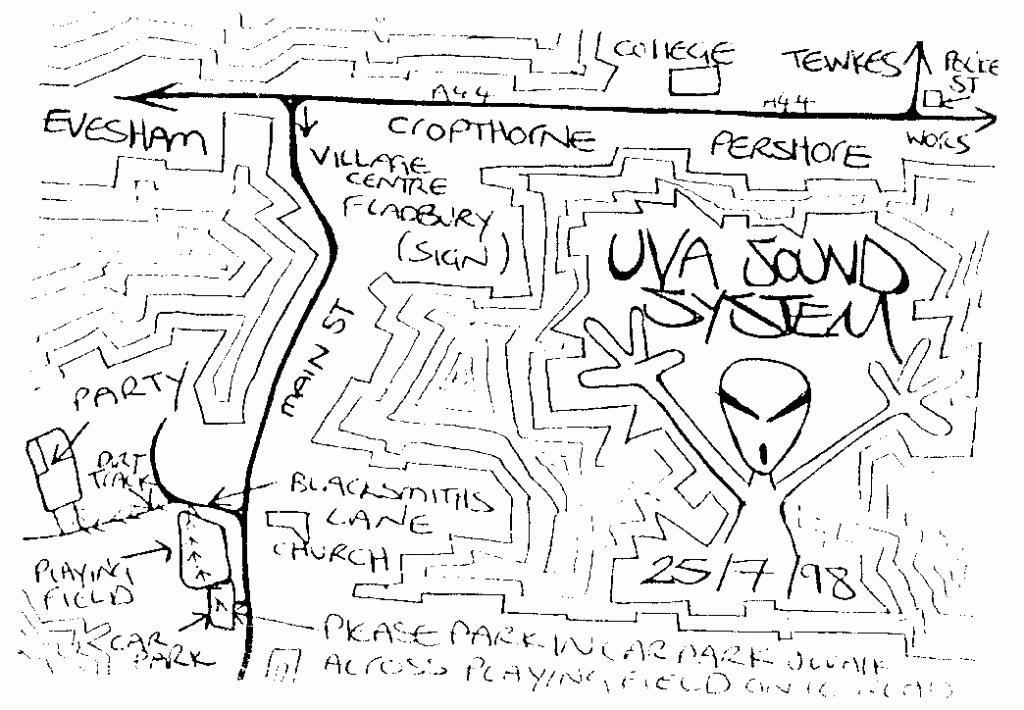 COLLEGE
TEWKES
POLICE
ST
A44
A44
EVESHAM
CROPTHORNE
PERSHORE
WORCS
VILLAGE
CENTRE
FLADBURY
(SIGN)
UVA SOUND
SYSTEM
MAIN ST
PARTY
DIRT
TRACK
BLACKSMITHS
LANE
CHURCH
PLAYING
FIELD
25/7/98
CAR
PARK
PLEASE PARK IN CAR PARK WALK
ACROSS PLAYING FIELD